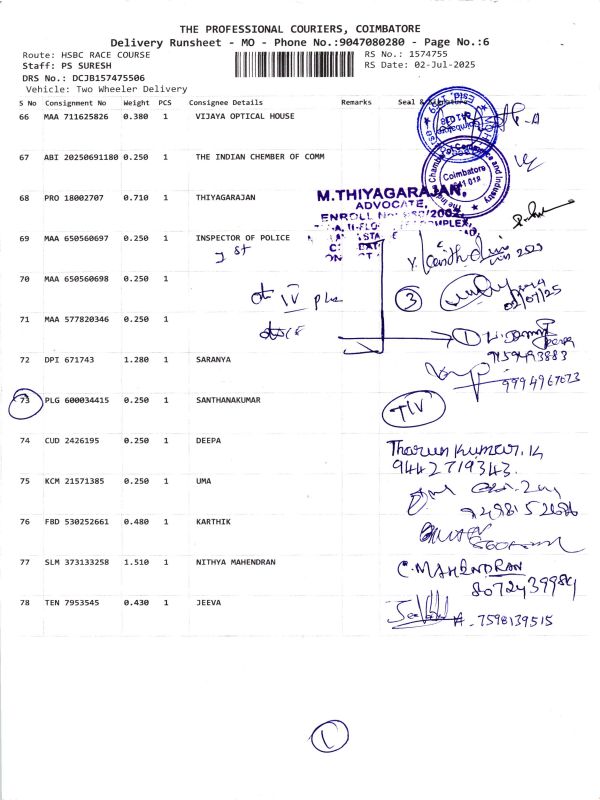 THE PROFESSIONAL COURIERS, COIMBATORE
Delivery Runsheet - MO - Phone No.:9047080280 - Page No.:6
Route: HSBC RACE COURSE
RS No.: 1574755
Staff: PS SURESH
RS Date: 02-Jul-2025
DRS No.: DCJB157475506
Vehicle: Two Wheeler Delivery
S No Consignment No Weight PCS Consignee Details Remarks Seal &
66 MAA 711625826 0.380 1 VIJAYA OPTICAL HOUSE
67 ABI 20250691180 0.250 1 THE INDIAN CHEMBER OF COMM
Coimbatore
68 PRO 18002707 0.710 1 THIYAGARAJAN
M.THIYAGARAJAN,
ADVOCATE,
69 MAA 650560697 0.250 1 INSPECTOR OF POLICE
70 MAA 650560698 0.250 1
3
71 MAA 577820346 0.250 1
1
72 DPI 671743 1.280 1 SARANYA
9994967073
73 PLG 600034415 0.250 1 SANTHANAKUMAR
74 CUD 2426195 0.250 1 DEEPA
Tharun Kumar. K
9442719343.
75 KCM 21571385 0.250 1 UMA
76 FBD 530252661 0.480 1 KARTHIK
77 SLM 373133258 1.510 1 NITHYA MAHENDRAN
C. MAHENDRAN
8072439984
78 TEN 7953545 0.430 1 JEEVA
7598139515
1